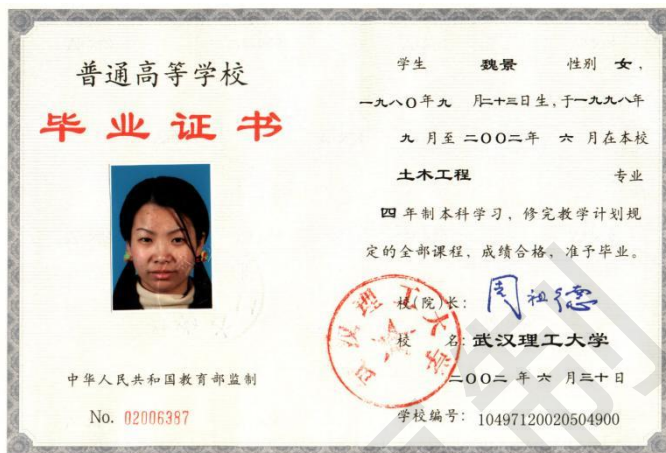 普通高等学校
毕业证书
中华人民共和国教育部监制
No. 02006387
学生 魏景 性别 女,
一九八〇年九 月二十三日生,于一九九八年
九 月至 二〇〇二年 六 月在本校
土木工程 专业
四 年制本科学习,修完教学计划规
定的全部课程,成绩合格,准予毕业。
校(院)长: 周祖德
校 名: 武汉理工大学
二〇〇二 年 六 月三十日
学校编号: 10497120020504900
武汉理工大学
制